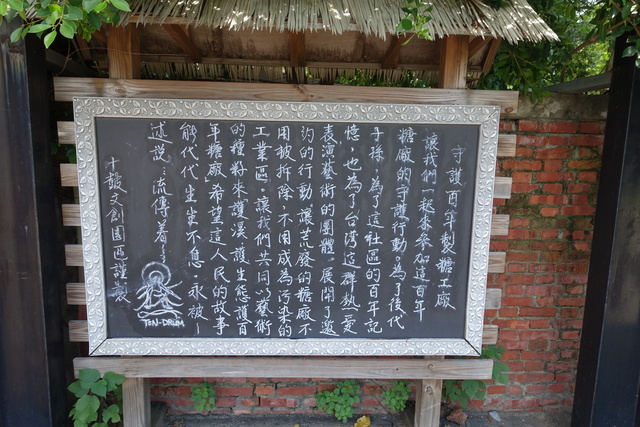 守護百年製糖工廠
讓我們一起來參加這百年
糖廠的守護行動。為了後代
子孫，為了這社區的百年記
憶，也為了台灣這群熱愛
表演藝術的團體，展開了邀
約的行動，讓荒廢的糖廠不
用被拆除，不用成為污染的
工業區。讓我們共同以藝術
的種籽來護溪、護生態護百
年糖廠，希望這人民的故事
能代代生生不息、永被~
述說...流傳著~
十鼓文創園區謹製
TEN-DRUM